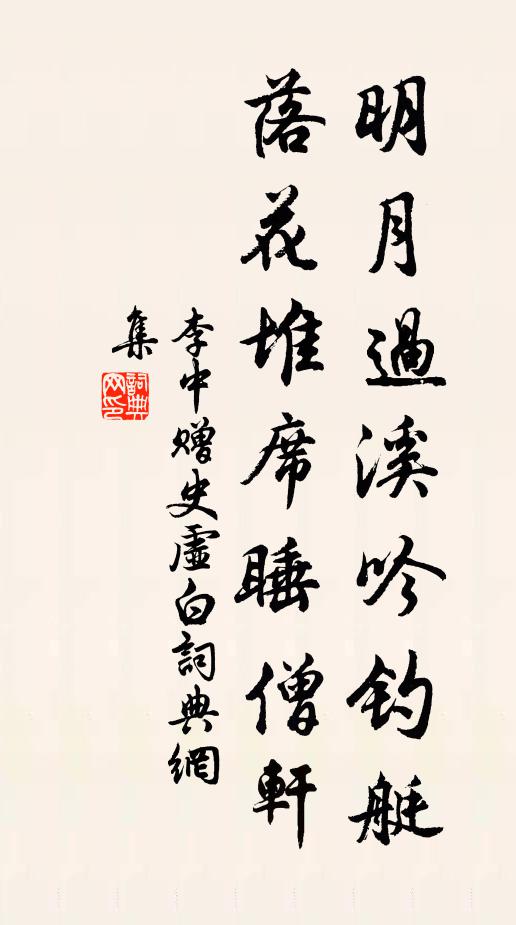 明月過溪吟釣艇
落花堆席睡僧軒
李中贈史虛白詞典網
集
詞典
网印